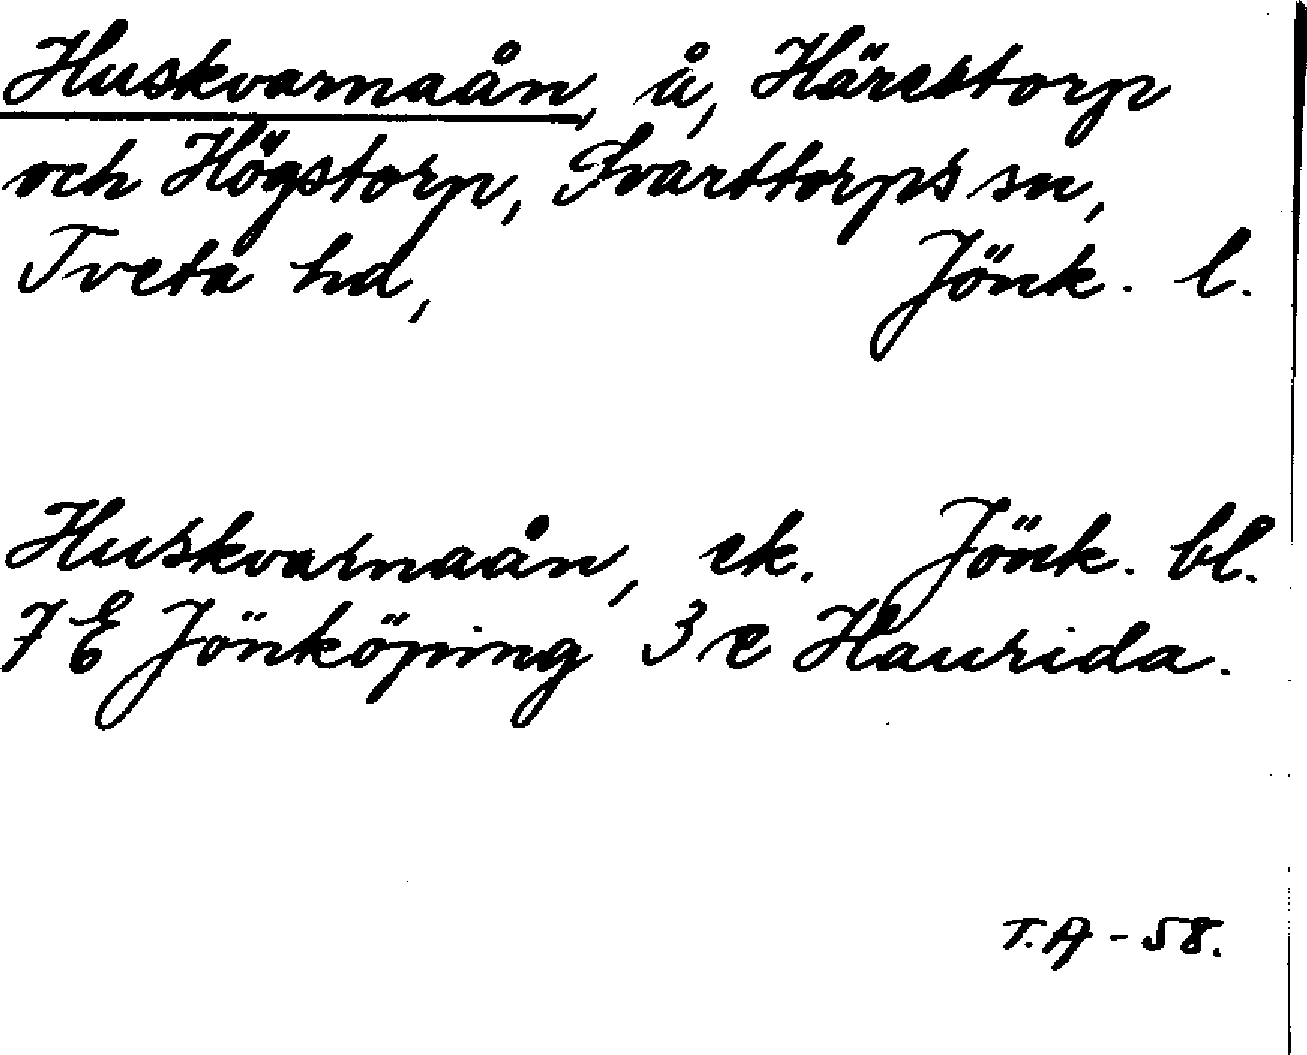 Huskvarnaån, å, Härestorp
och Högstorp, Svarttorps sn,
Tveta hd, Jönk. l.
Huskvarnaån, ek. Jönk. bl.
7 E Jönköping 3 e Haurida.
T.A - 58.